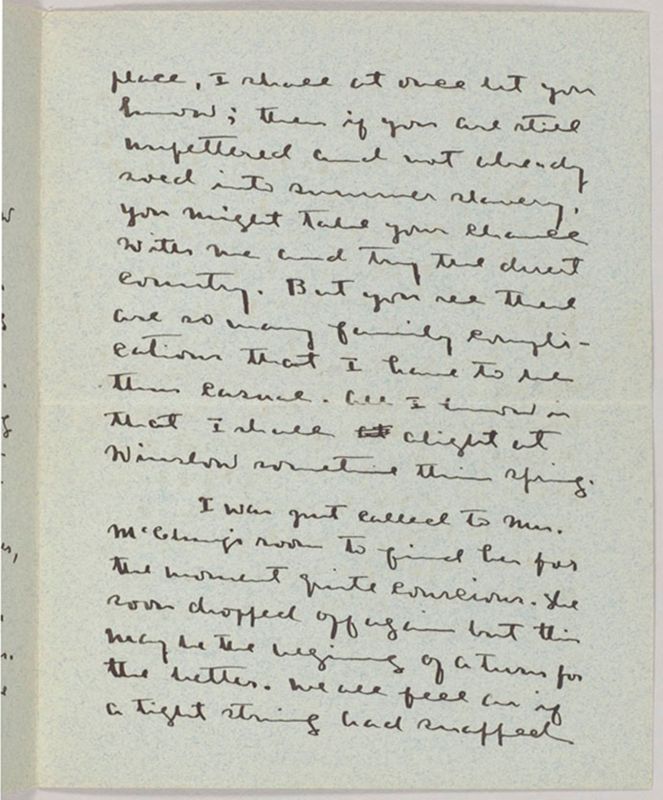 place, I shall at once let you
know; then if you are still
unfettered and not already
sold into summer slavery,
you might take your chance
with me and try the desert
country. But you see there
are so many family compli-
cations that I have to be
thus casual. All I know is
that I shall alight at
Winslow sometime this spring.
I was just called to Mrs.
McClung's room to find her for
the moment quite conscious. She
soon dropped off again but this
may be the begining of a turn for
the better. We all feel as if
a tight string had snapped